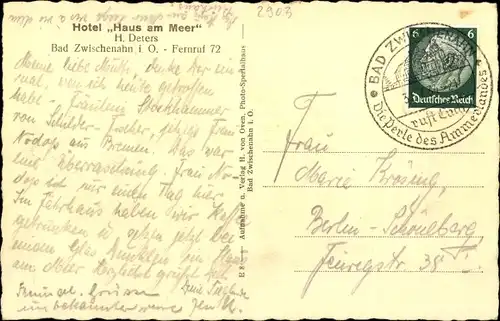 2903
Hotel „Haus am Meer"
H. Deters
Bad Zwischenahn i. O. - Fernruf 72
Meine liebe Mutti, denke Dir ein-
mal, wen ich heute getroffen
habe - Fräulein Stockhammer
von Schilder-Fischer, jetzige Frau
aus Bremen. Das war
eine Überraschung. Frau
ist nur einen Tag hier.
Im Fährhaus haben wir Kaffee
getrunken u. sitzen jetzt bei
einem Glas Dunklen im Haus
am Meer. Herzlichst grüßt Dich
Deine
unbekannterweise
E 8 Aufnahme u. Verlag H. von Oven, Photo-Spezialhaus
Bad Zwischenahn i. O.
BAD ZWISCHENAHN
ruft Euch
Die Perle des Ammerlandes
6 6
Deutsches Reich
Frau
Marie Krösing,
Berlin-Schöneberg
Feurigstr. 35